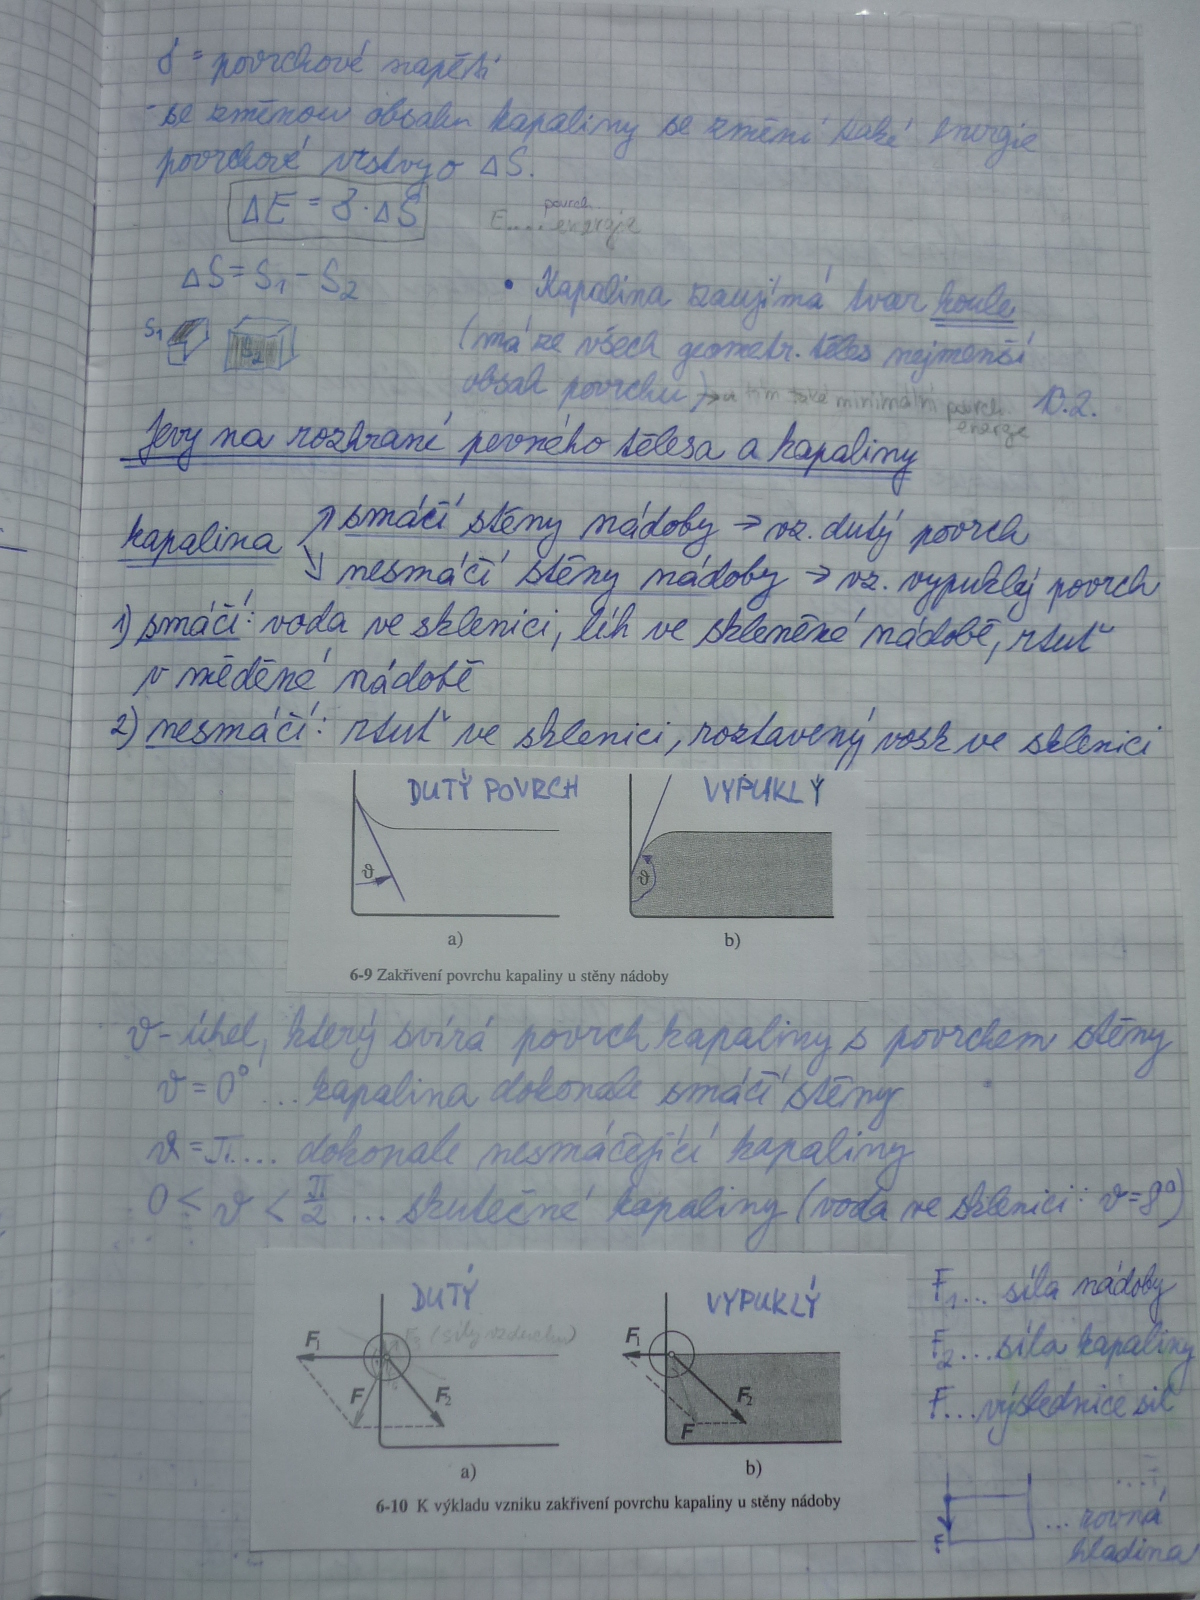 δ = povrchové napětí
- se změnou obsahu kapaliny se změní také energie
povrchové vrstvy o ΔS.
ΔE = δ · ΔS
povrch.
E.... energie
ΔS = S₁ - S₂
S₁
S₂
• Kapalina zaujímá tvar koule
(má ze všech geometr. těles nejmenší
obsah povrchu) → a tím také minimální povrch.
energie
10.2.
Jevy na rozhraní pevného tělesa a kapaliny
kapalina
↗ smáčí stěny nádoby → vz. dutý povrch
↘ nesmáčí stěny nádoby → vz. vypuklý povrch
1) smáčí: voda ve sklenici, líh ve skleněné nádobě, rtuť
v měděné nádobě
2) nesmáčí: rtuť ve sklenici, roztavený vosk ve sklenici
DUTÝ POVRCH
VYPUKLÝ
ϑ
ϑ
a)
b)
6-9 Zakřivení povrchu kapaliny u stěny nádoby
ϑ - úhel, který svírá povrch kapaliny s povrchem stěny
ϑ = 0° ... kapalina dokonale smáčí stěny
ϑ = π.... dokonale nesmáčející kapaliny
0 < ϑ < π/2 ... skutečné kapaliny (voda ve sklenici: ϑ = 8°)
DUTÝ
VYPUKLÝ
(síly vzduchu)
F₁
F
F₂
F₁
F₂
F
a)
b)
6-10 K výkladu vzniku zakřivení povrchu kapaliny u stěny nádoby
F₁... síla nádoby
F₂... síla kapaliny
F... výslednice sil
F
... rovná
hladina